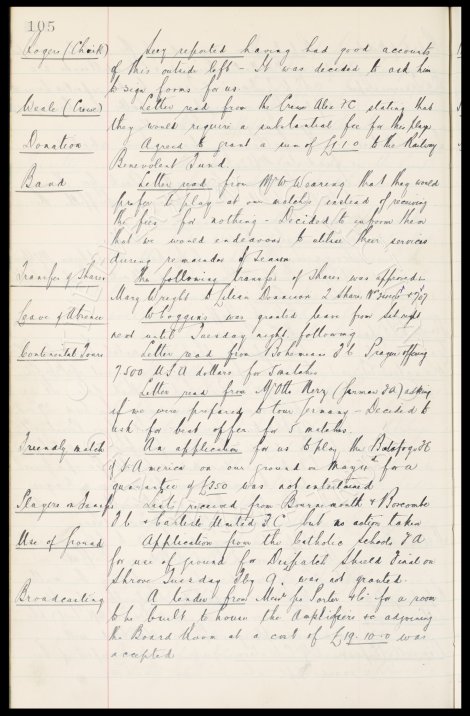 105
Rogers (Chirk) Secy reported having had good accounts
of this outside left - It was decided to ask him
to sign forms for us.
Weale (Crewe) Letter read from the Crewe Alex FC stating that
they would require a substantial fee for this player
Donation Agreed to grant a sum of £1.1.0 to the Railway
Benevolent Fund.
Band Letter read from Mr W Waring that they would
prefer to play at our matches instead of receiving
the fees for nothing - Decided to inform them
that we would endeavour to utilise their services
during remainder of Season
Transfer of Shares The following transfer of Shares was approved
Mary Wright to Eileen Dennison 2 shares Nos & 707
Leave of Absence W Coggins was granted leave from Sat night
next until Tuesday night following
Continental Tours Letter read from Bohemians F.C Prague offering
7500 U.S.A dollars for 5 matches
Letter read from Mr Otto Nerz (German F.A) asking
if we were prepared to tour Germany - Decided to
ask for best offer for 5 matches.
Friendly match An application for us to play the Botafogo FC
of S. America on our ground on May for a
guarantee of £350 was not entertained
Players on Transfer Lists received from Bournemouth & Boscombe
F.C & Carlisle United F.C but no action taken
Use of Ground Application from the Catholic Schools F.A
for use of ground for Dispatch Shield Final on
Shrove Tuesday Feby 9. was not granted.
Broadcasting A tender from Messrs Porter & Co for a room
to be built to house the Amplifiers &c adjoining
the Board Room at a cost of £19.10.0 was
accepted